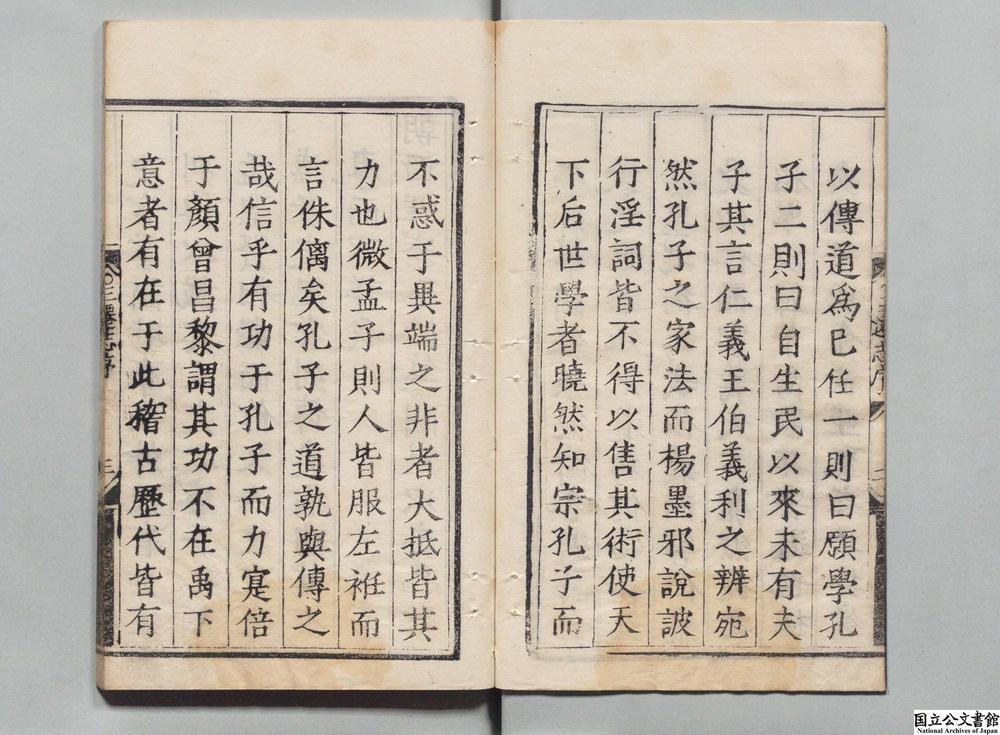 以傳道爲已任一則曰願學孔
子二則曰自生民以來未有夫
子其言仁義王伯義利之辨宛
然孔子之家法而楊墨邪說詖
行淫詞皆不得以售其術使天
下后世學者曉然知宗孔子而
不惑于異端之非者大抵皆其
力也微孟子則人皆服左袵而
言侏㒧矣孔子之道孰與傳之
哉信乎有功于孔子而力寔倍
于顏曾昌黎謂其功不在禹下
意者有在于此稽古歷代皆有
三遷志序
三
国立公文書館
National Archives of Japan